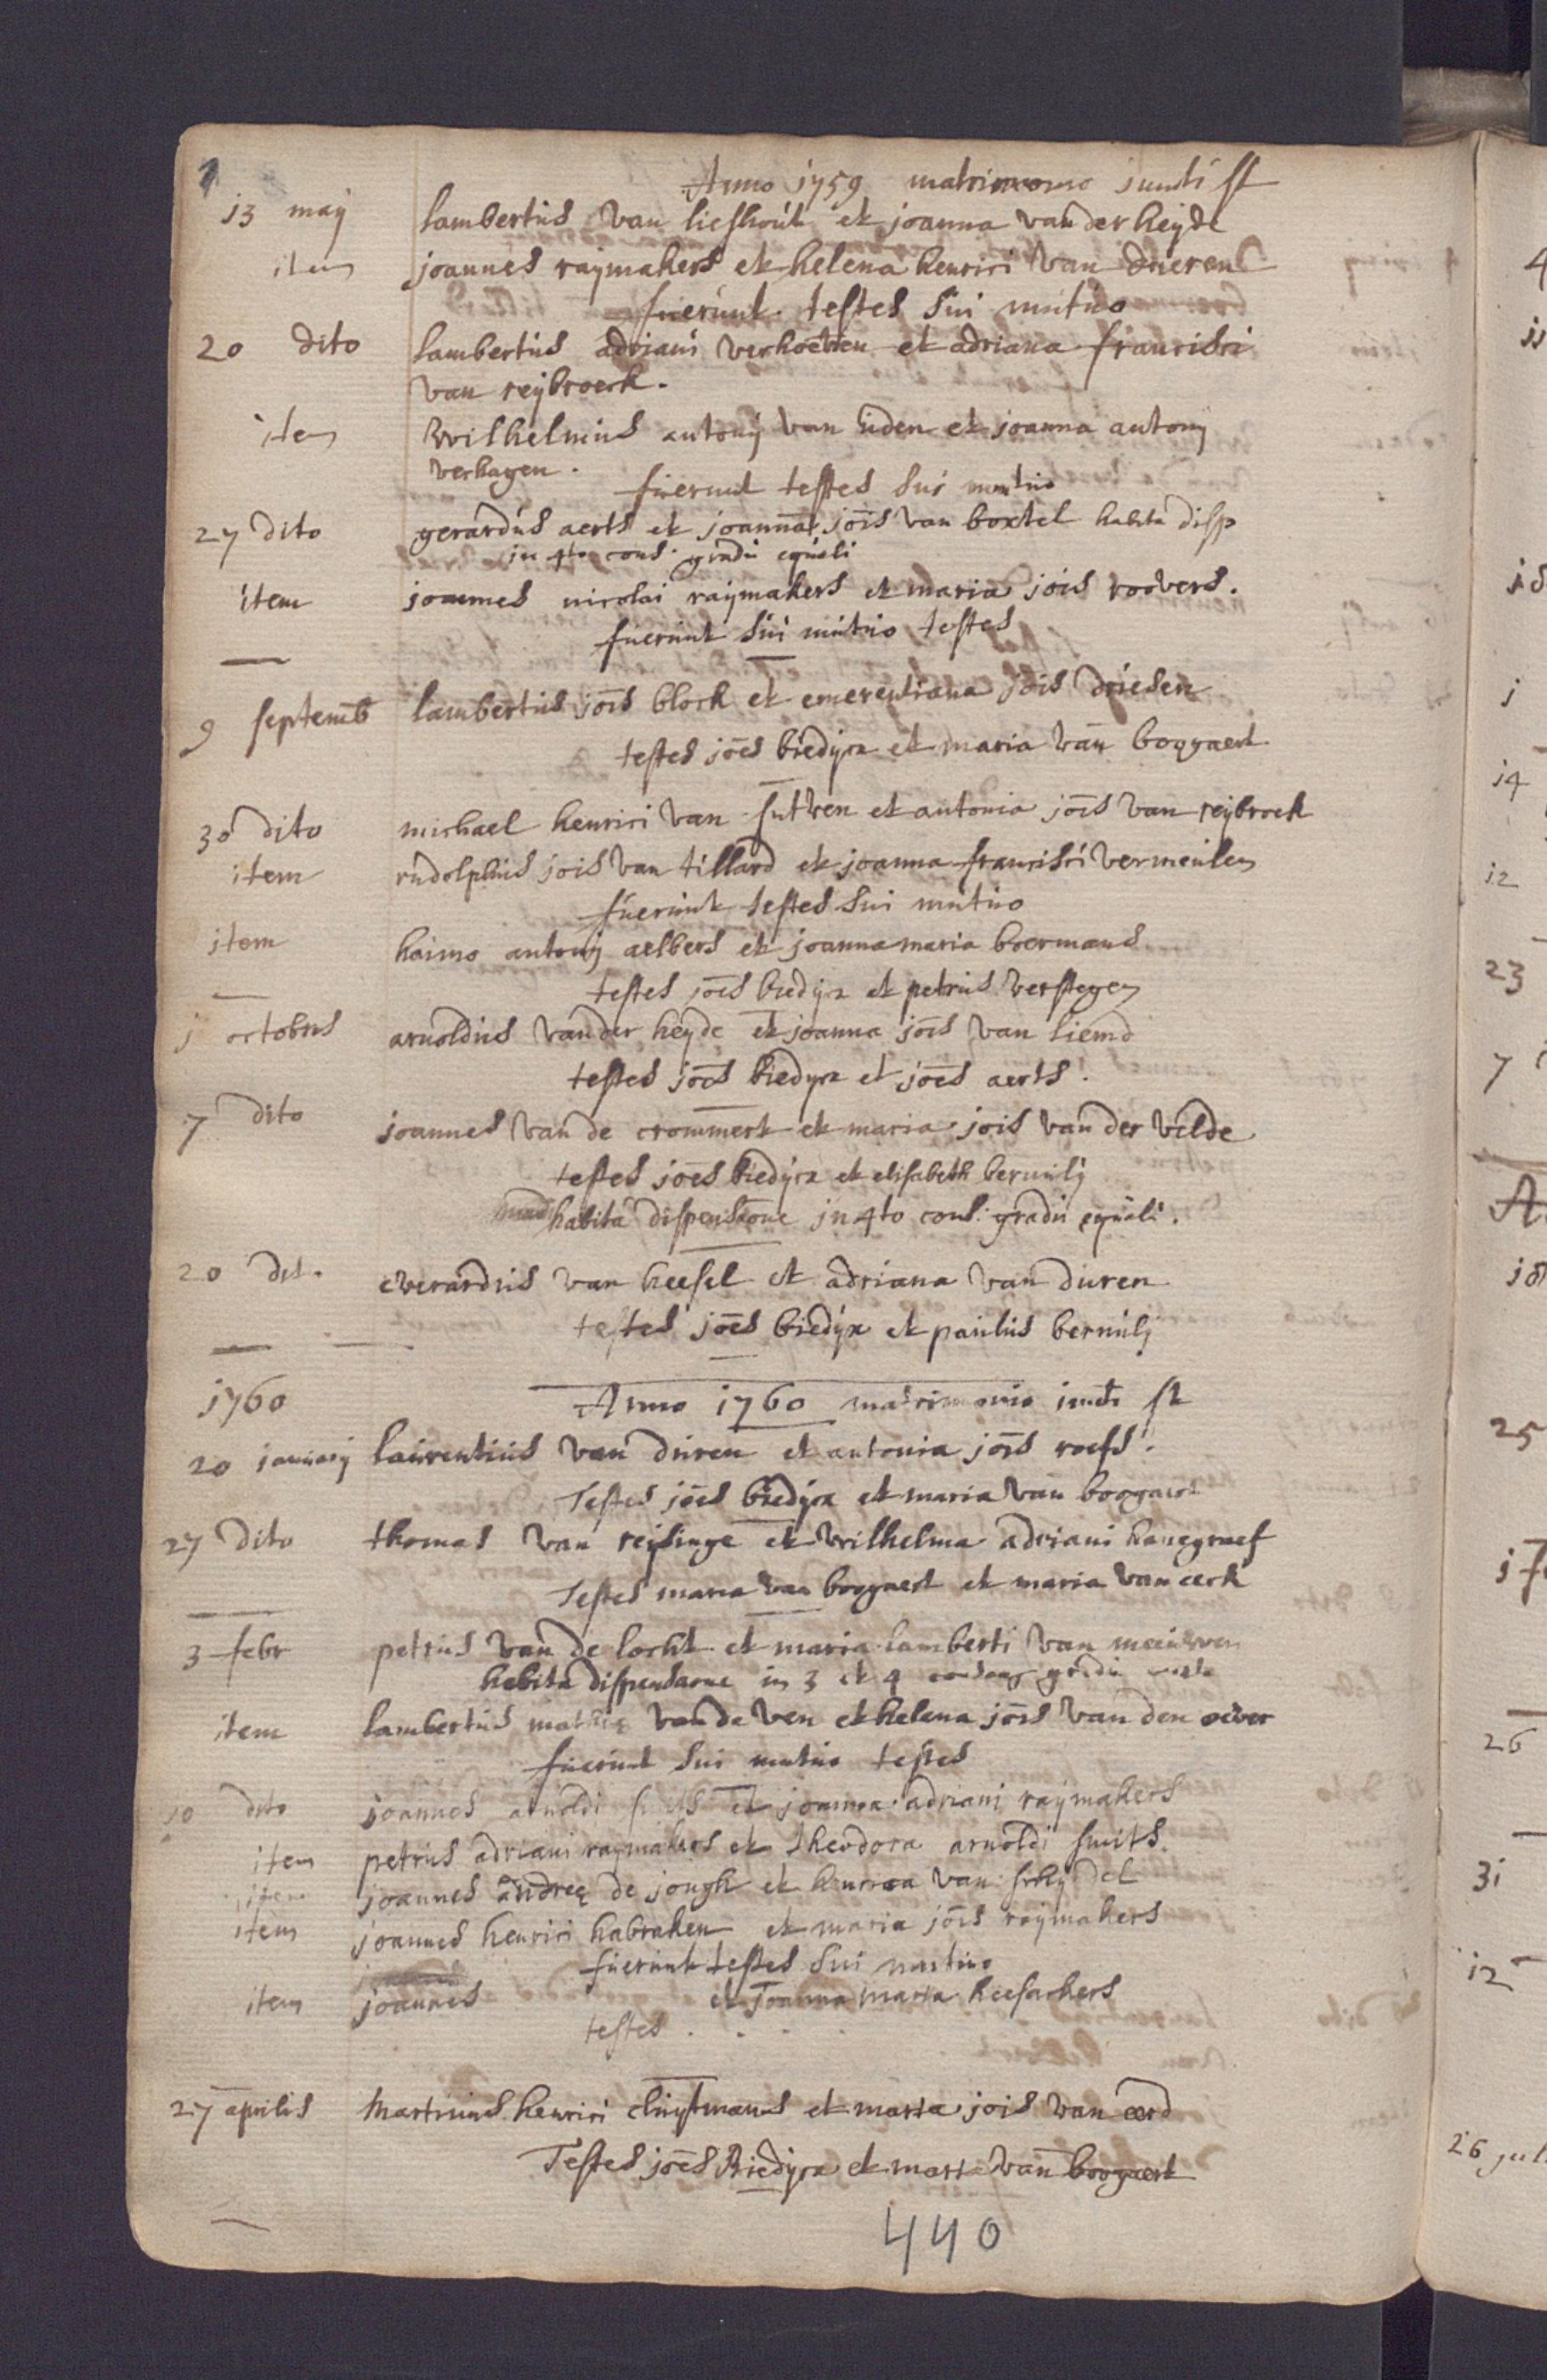 Anno 1759 matrimonio juncti st
13 maij lambertus van lieshout et joanna vander heyde
item joannes raijmakers et helena henrici van dueren
fuerunt testes sui mutuo
20 dito lambertus adriani verhoeven et adriana francisci
van reijbroeck.
item wilhelmus antonij van uden et joanna antonij
verhagen.
fuerunt testes sui mutuo
27 dito gerardus aerts et joanna jõis van boxtel habita disp
in 4to cons. gradu equali
item joannes nicolai raijmakers et maria jois roovers.
fuerunt sui mutuo testes
9 septemb lambertus jõis block et emerentiana jõis driesen
testes jões biedijx et maria van boogaert
30 dito michael henrici van hutven et antonia jõis van reijbroek
item rudolphus jois van tillard et joanna francisci vermeulen
fuerunt testes sui mutuo
item haimo antonij aelbers et joanna maria boermans
testes jões biedijx et petrus verstegen
j octobris arnoldus vander heyde et joanna jõis van liemd
testes jões biedijx et jões aerts.
7 dito joannes van de crommert et maria jois van der velde
testes jões biedijx et elisabeth bernulij
habita dispensaõne in 4to cons. gradu equali.
20 dit. everardus van heesel et adriana van duren
testes jões biedijx et paulus bernulij
1760 Anno 1760 matrimonio juncti st
20 januarij laurentius van duren et antonia jõis roefs.
Testes jões biedijx et maria van boogaert
27 dito thomas van reijsinge et wilhelma adriani hanegraef
Testes maria van boogaert et maria van eerk
3 febr petrus van de locht et maria lamberti van meeuwen
habita dispensaone in 3 et 4 consang gradu mixto
item lambertus mathię van de ven et helena jõis van den oever
fuerunt sui mutuo testes
10 dito joannes arnoldi smits et joanna adriani raijmakers
item petrus adriani raijmakers et theodora arnoldi smits.
item joannes andreę de jongh et henrica van schijndel
item joannes henrici habraken et maria jõis raijmakers
fuerunt testes sui mutuo
item joannes et Joanna maria heesackers
testes . . . .
27 aprilis Martinus henrici cluijtmans et maria jois van eerd
Testes jões Biedijx et mari van boogaert
440
4
jj
j
14
12
23
7
25
26
31
12
26 jul